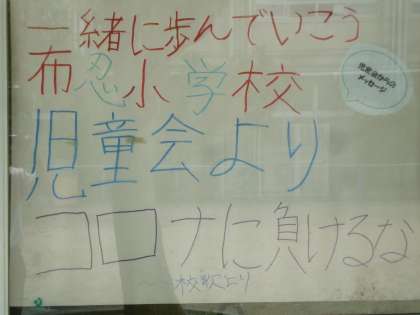 一緒に歩んでいこう
布忍小学校
児童会からの
メッセージ
児童会より
コロナに負けるな
～校歌より